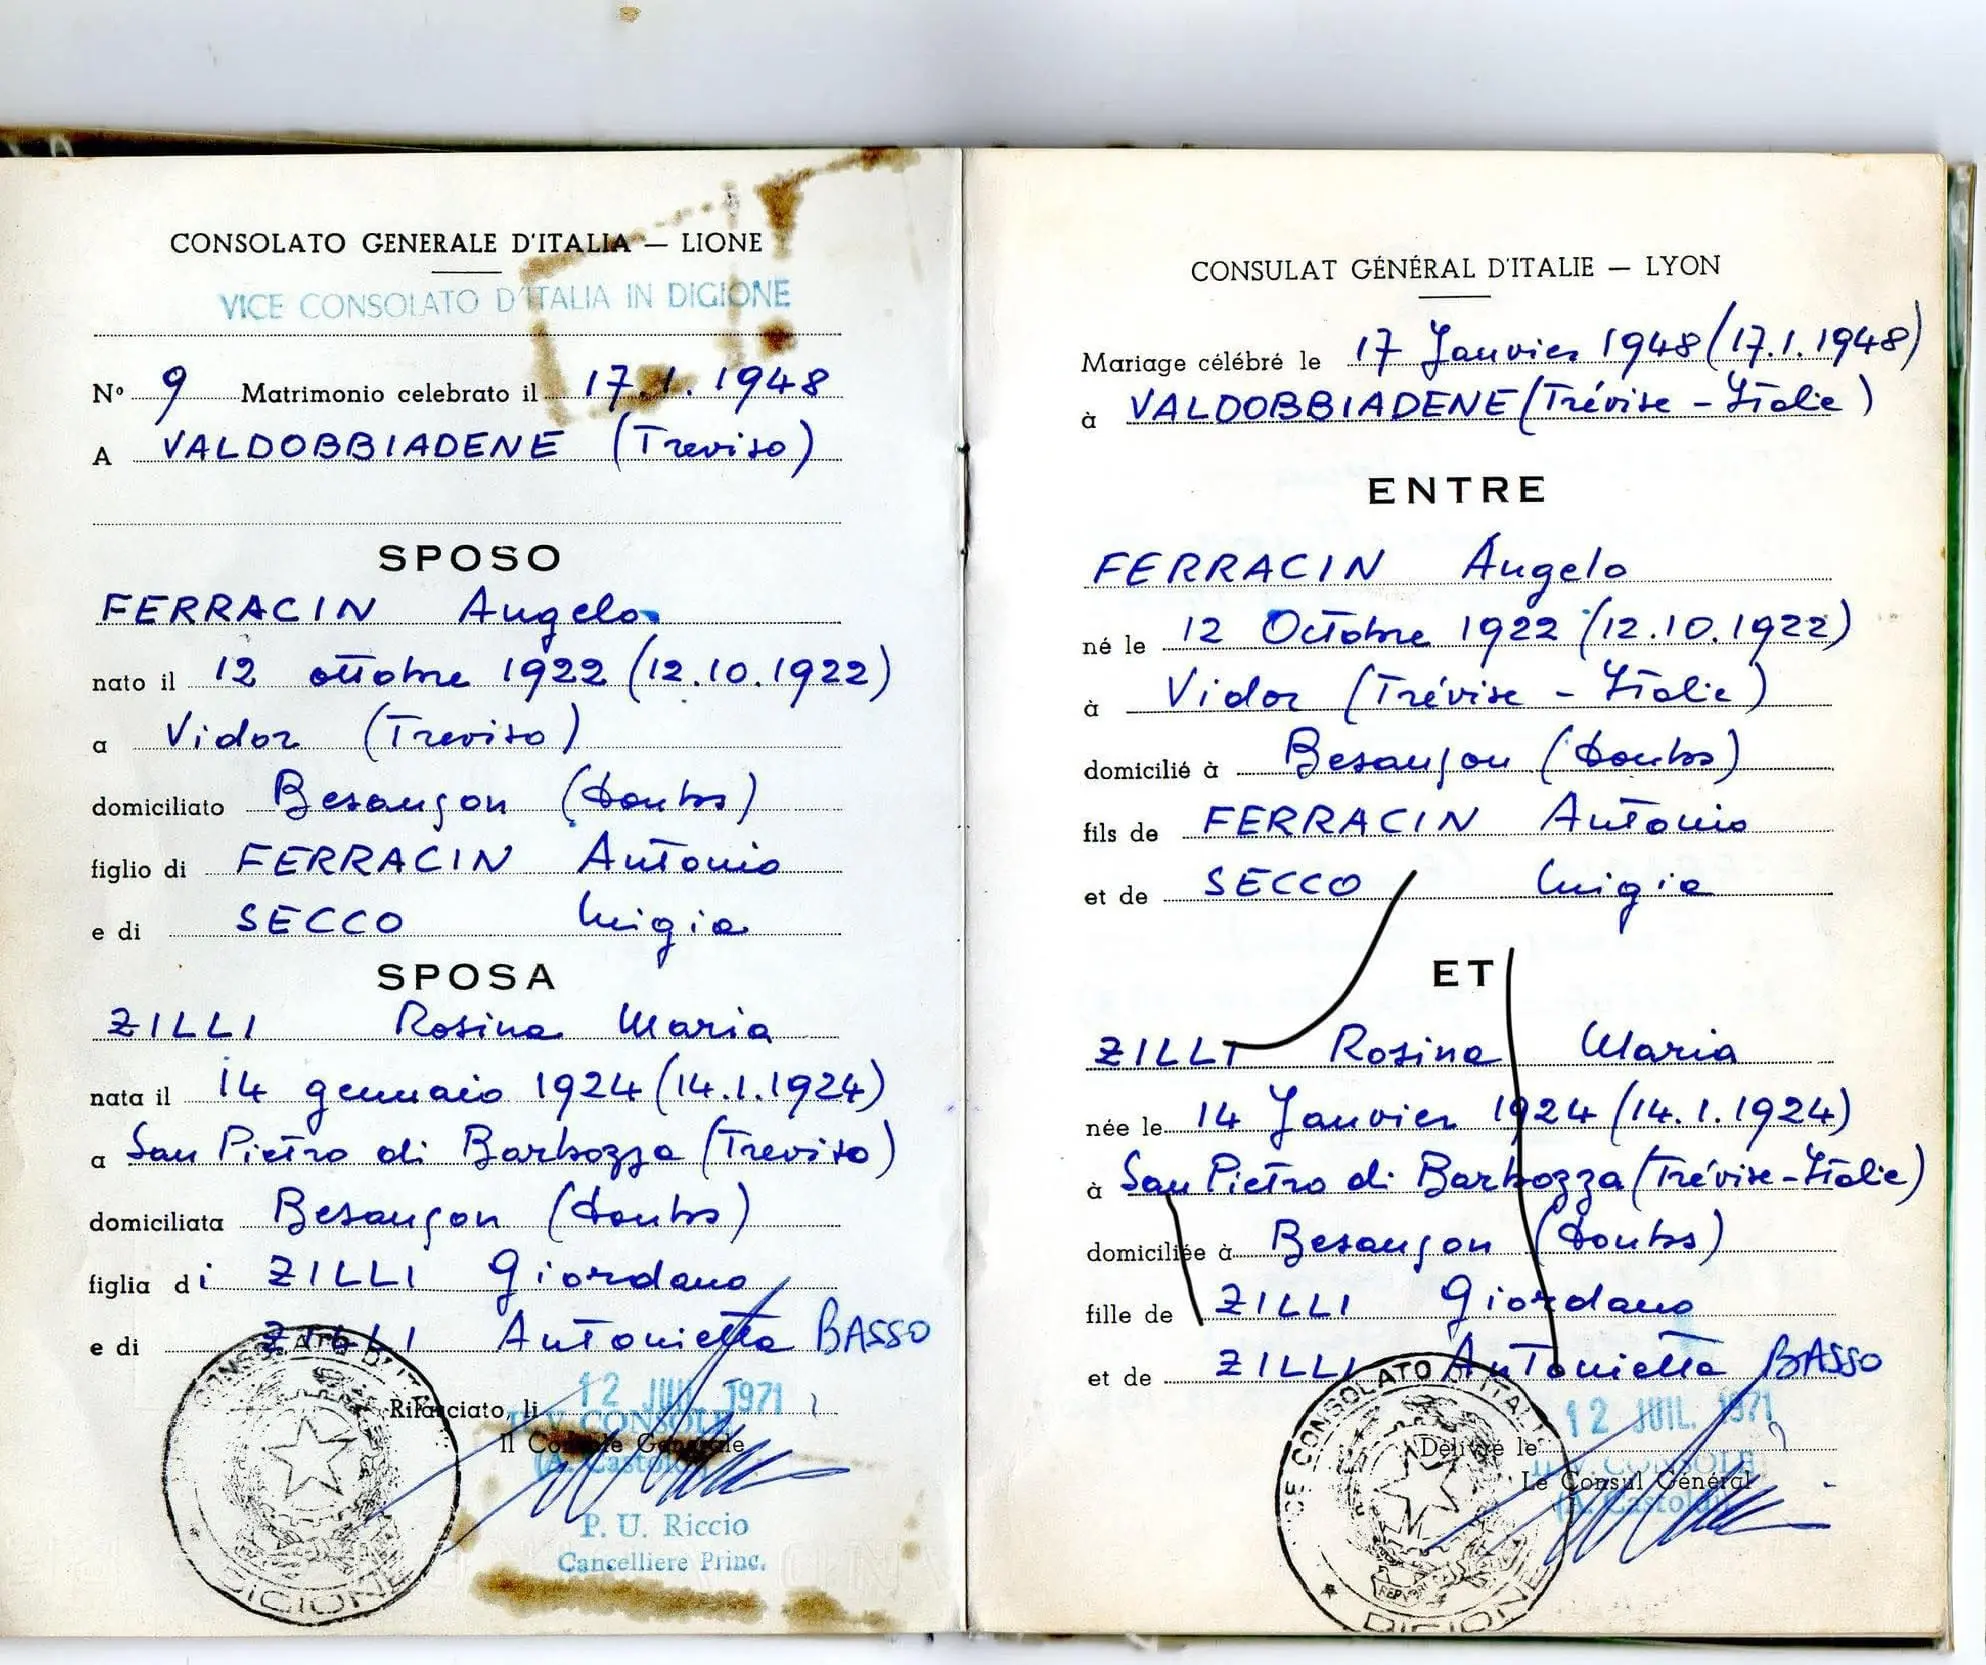 CONSOLATO GENERALE D'ITALIA — LIONE
VICE CONSOLATO D'ITALIA IN DIGIONE
Nº 9 Matrimonio celebrato il 17.1.1948
A VALDOBBIADENE (Treviso)
SPOSO
FERRACIN Angelo
nato il 12 ottobre 1922 (12.10.1922)
a Vidor (Treviso)
domiciliato Besançon (Doubs)
figlio di FERRACIN Antonio
e di SECCO Luigia
SPOSA
ZILLI Rosina Maria
nata il 14 gennaio 1924 (14.1.1924)
a San Pietro di Barbozza (Treviso)
domiciliata Besançon (Doubs)
figlia di ZILLI Giordano
e di ZILLI Antonietta BASSO
Rilasciato, li 12 JUIL. 1971
IL V. CONSOLE
Il Console Generale
P. U. Riccio
Cancelliere Princ.
VICE CONSOLATO D'ITALIA
DIGIONE
CONSULAT GÉNÉRAL D'ITALIE — LYON
Mariage célébré le 17 Janvier 1948 (17.1.1948)
à VALDOBBIADENE (Trévise - Italie)
ENTRE
FERRACIN Angelo
né le 12 Octobre 1922 (12.10.1922)
à Vidor (Trévise - Italie)
domicilié à Besançon (Doubs)
fils de FERRACIN Antonio
et de SECCO Luigia
ET
ZILLI Rosina Maria
née le 14 Janvier 1924 (14.1.1924)
à San Pietro di Barbozza (Trévise-Italie)
domiciliée à Besançon (Doubs)
fille de ZILLI Giordano
et de ZILLI Antonietta BASSO
Délivré le 12 JUIL. 1971
IL V. CONSOLE
Le Consul Général
VICE CONSOLATO D'ITALIA
DIGIONE